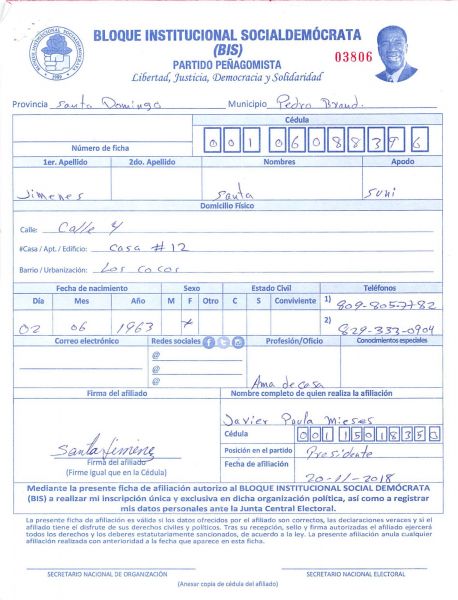 BLOQUE INSTITUCIONAL SOCIALDEMÓCRATA
(BIS)
03806
PARTIDO PEÑAGOMISTA
Libertad, Justicia, Democracia y Solidaridad
Provincia Santo Domingo Municipio Pedro Brand
Cédula
Número de ficha 001 0608839 6
1er. Apellido 2do. Apellido Nombres Apodo
Jimenes Santa Suni
Domicilio Físico
Calle: Calle 4
#Casa / Apt. / Edificio: Casa #12
Barrio / Urbanización: Los cocos
Fecha de nacimiento Sexo Estado Civil Teléfonos
Día Mes Año M F Otro C S Conviviente 1) 809-805-7782
02 06 1963 x 2) 829-333-0904
Correo electrónico Redes sociales Profesión/Oficio Conocimientos especiales
@
@
@
Ama de casa
Firma del afiliado Nombre completo de quien realiza la afiliación
Javier Paula Mieses
Cédula 001 1501835 2
Santa Jimene
Firma del afiliado
(Firme igual que en la Cédula)
Posición en el partido Presidente
Fecha de afiliación 20-11-2018
Mediante la presente ficha de afiliación autorizo al BLOQUE INSTITUCIONAL SOCIAL DEMÓCRATA
(BIS) a realizar mi inscripción única y exclusiva en dicha organización política, así como a registrar
mis datos personales ante la Junta Central Electoral.
La presente ficha de afiliación es válida si los datos ofrecidos por el afiliado son correctos, las declaraciones veraces y si el
afiliado tiene el disfrute de sus derechos civiles y políticos. Tras su recepción, sello y firma autorizadas el afiliado ejercerá
todos los derechos y los deberes estatutariamente sancionados, de acuerdo a la ley. La presente afiliación anula cualquier
afiliación realizada con anterioridad a la fecha que aparece en esta ficha.
SECRETARIO NACIONAL DE ORGANIZACIÓN SECRETARIO NACIONAL ELECTORAL
(Anexar copia de cédula del afiliado)